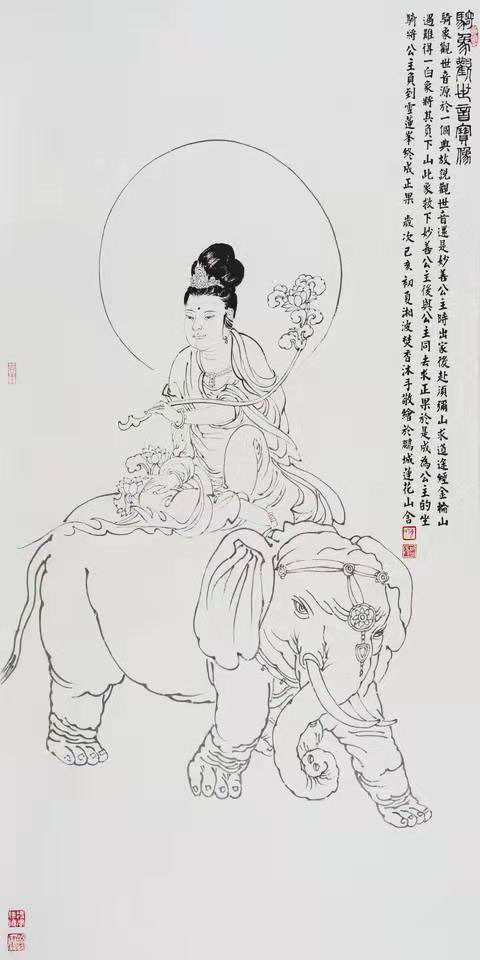 騎象觀世音寶像
騎象觀世音源於一個典故說觀世音還是妙善公主時出家後赴須彌山求道途經金輪山
遇難得一白象將其負下山此象救下妙善公主後與公主同去求正果於是成為公主的坐
騎將公主負到雪蓮峯終成正果 歲次己亥初夏湘波焚香沐手敬繪於鵬城蓮花山舍